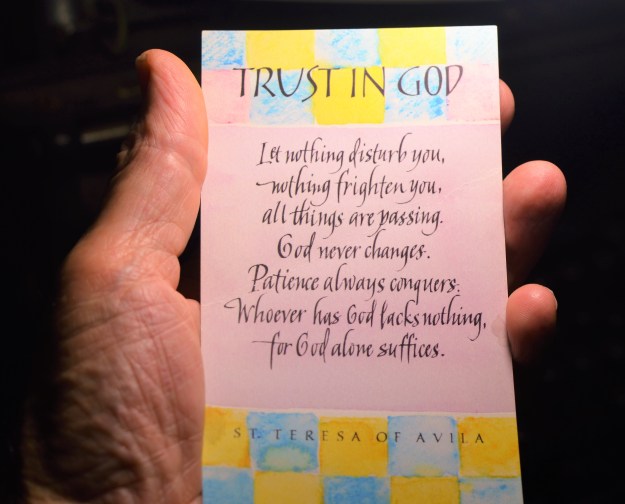 TRUST IN GOD
Let nothing disturb you,
nothing frighten you,
all things are passing.
God never changes.
Patience always conquers.
Whoever has God lacks nothing,
for God alone suffices.
ST. TERESA OF AVILA